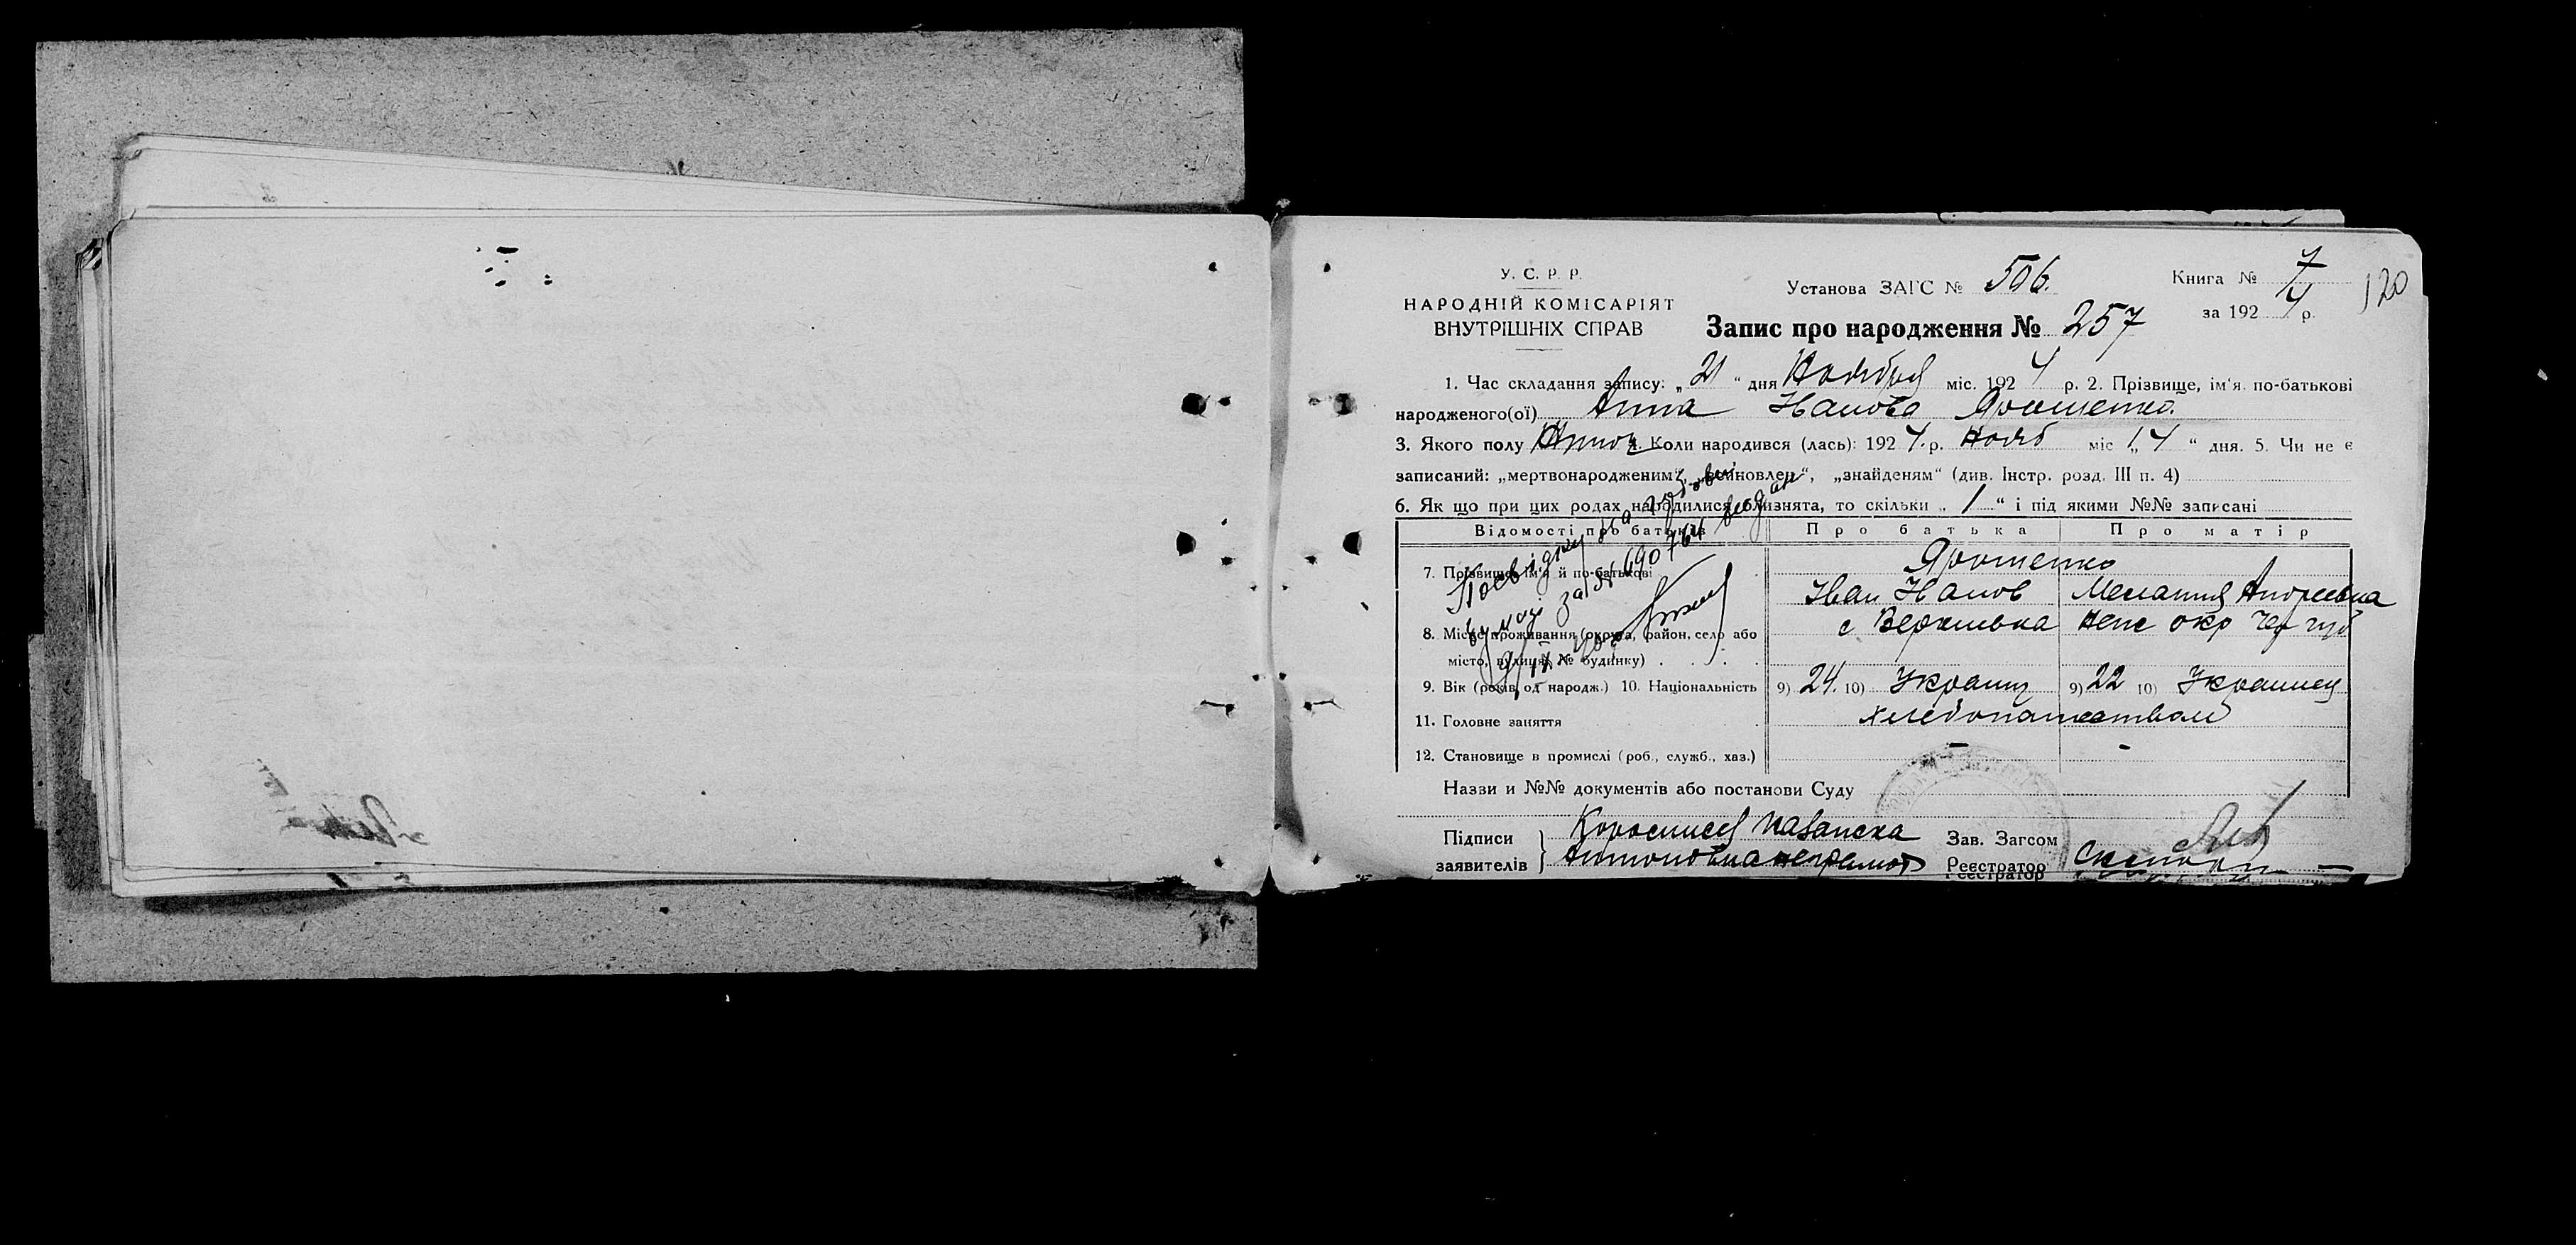 У. С. Р. Р.
НАРОДНІЙ КОМІСАРІЯТ
ВНУТРІШНІХ СПРАВ
Установа ЗАГС № 506.
Книга № 7
за 1924 р.
120
Запис про народження № 257
1. Час складання запису: „21“ дня Ноября міс. 1924 р. 2. Прізвище, ім'я по-батькові
народженого(ої) Анна Иванова Ярошенко
3. Якого полу 4. Коли народився (лась): 1924 р. Нояб міс „14“ дня. 5. Чи не є
записаний: „мертвонародженим“, „знайденям“ (див. Інстр. розд. III п. 4)
6. Як що при цих родах народилися близнята, то скільки „1“ і під якими №№ записані
Відомості про батьків Про батька Про матір
7. Прізвище, ім'я й по-батькові Ярошенко
Иван Иванов Мелания Андреевна
8. Місце проживання (округа, район, село або с Веркиевка Неж окр Чер губ
місто, вулиця, № будинку)
9. Вік (років од народж.) 10. Національність 9) 24. 10) Украин 9) 22 10) Украинец
11. Головне заняття хлебопашеством
12. Становище в промислі (роб., служб., хаз.) - -
Назви и №№ документів або постанови Суду
Підписи
заявителів Антоновна неграмот
Зав. Загсом
Реєстратор